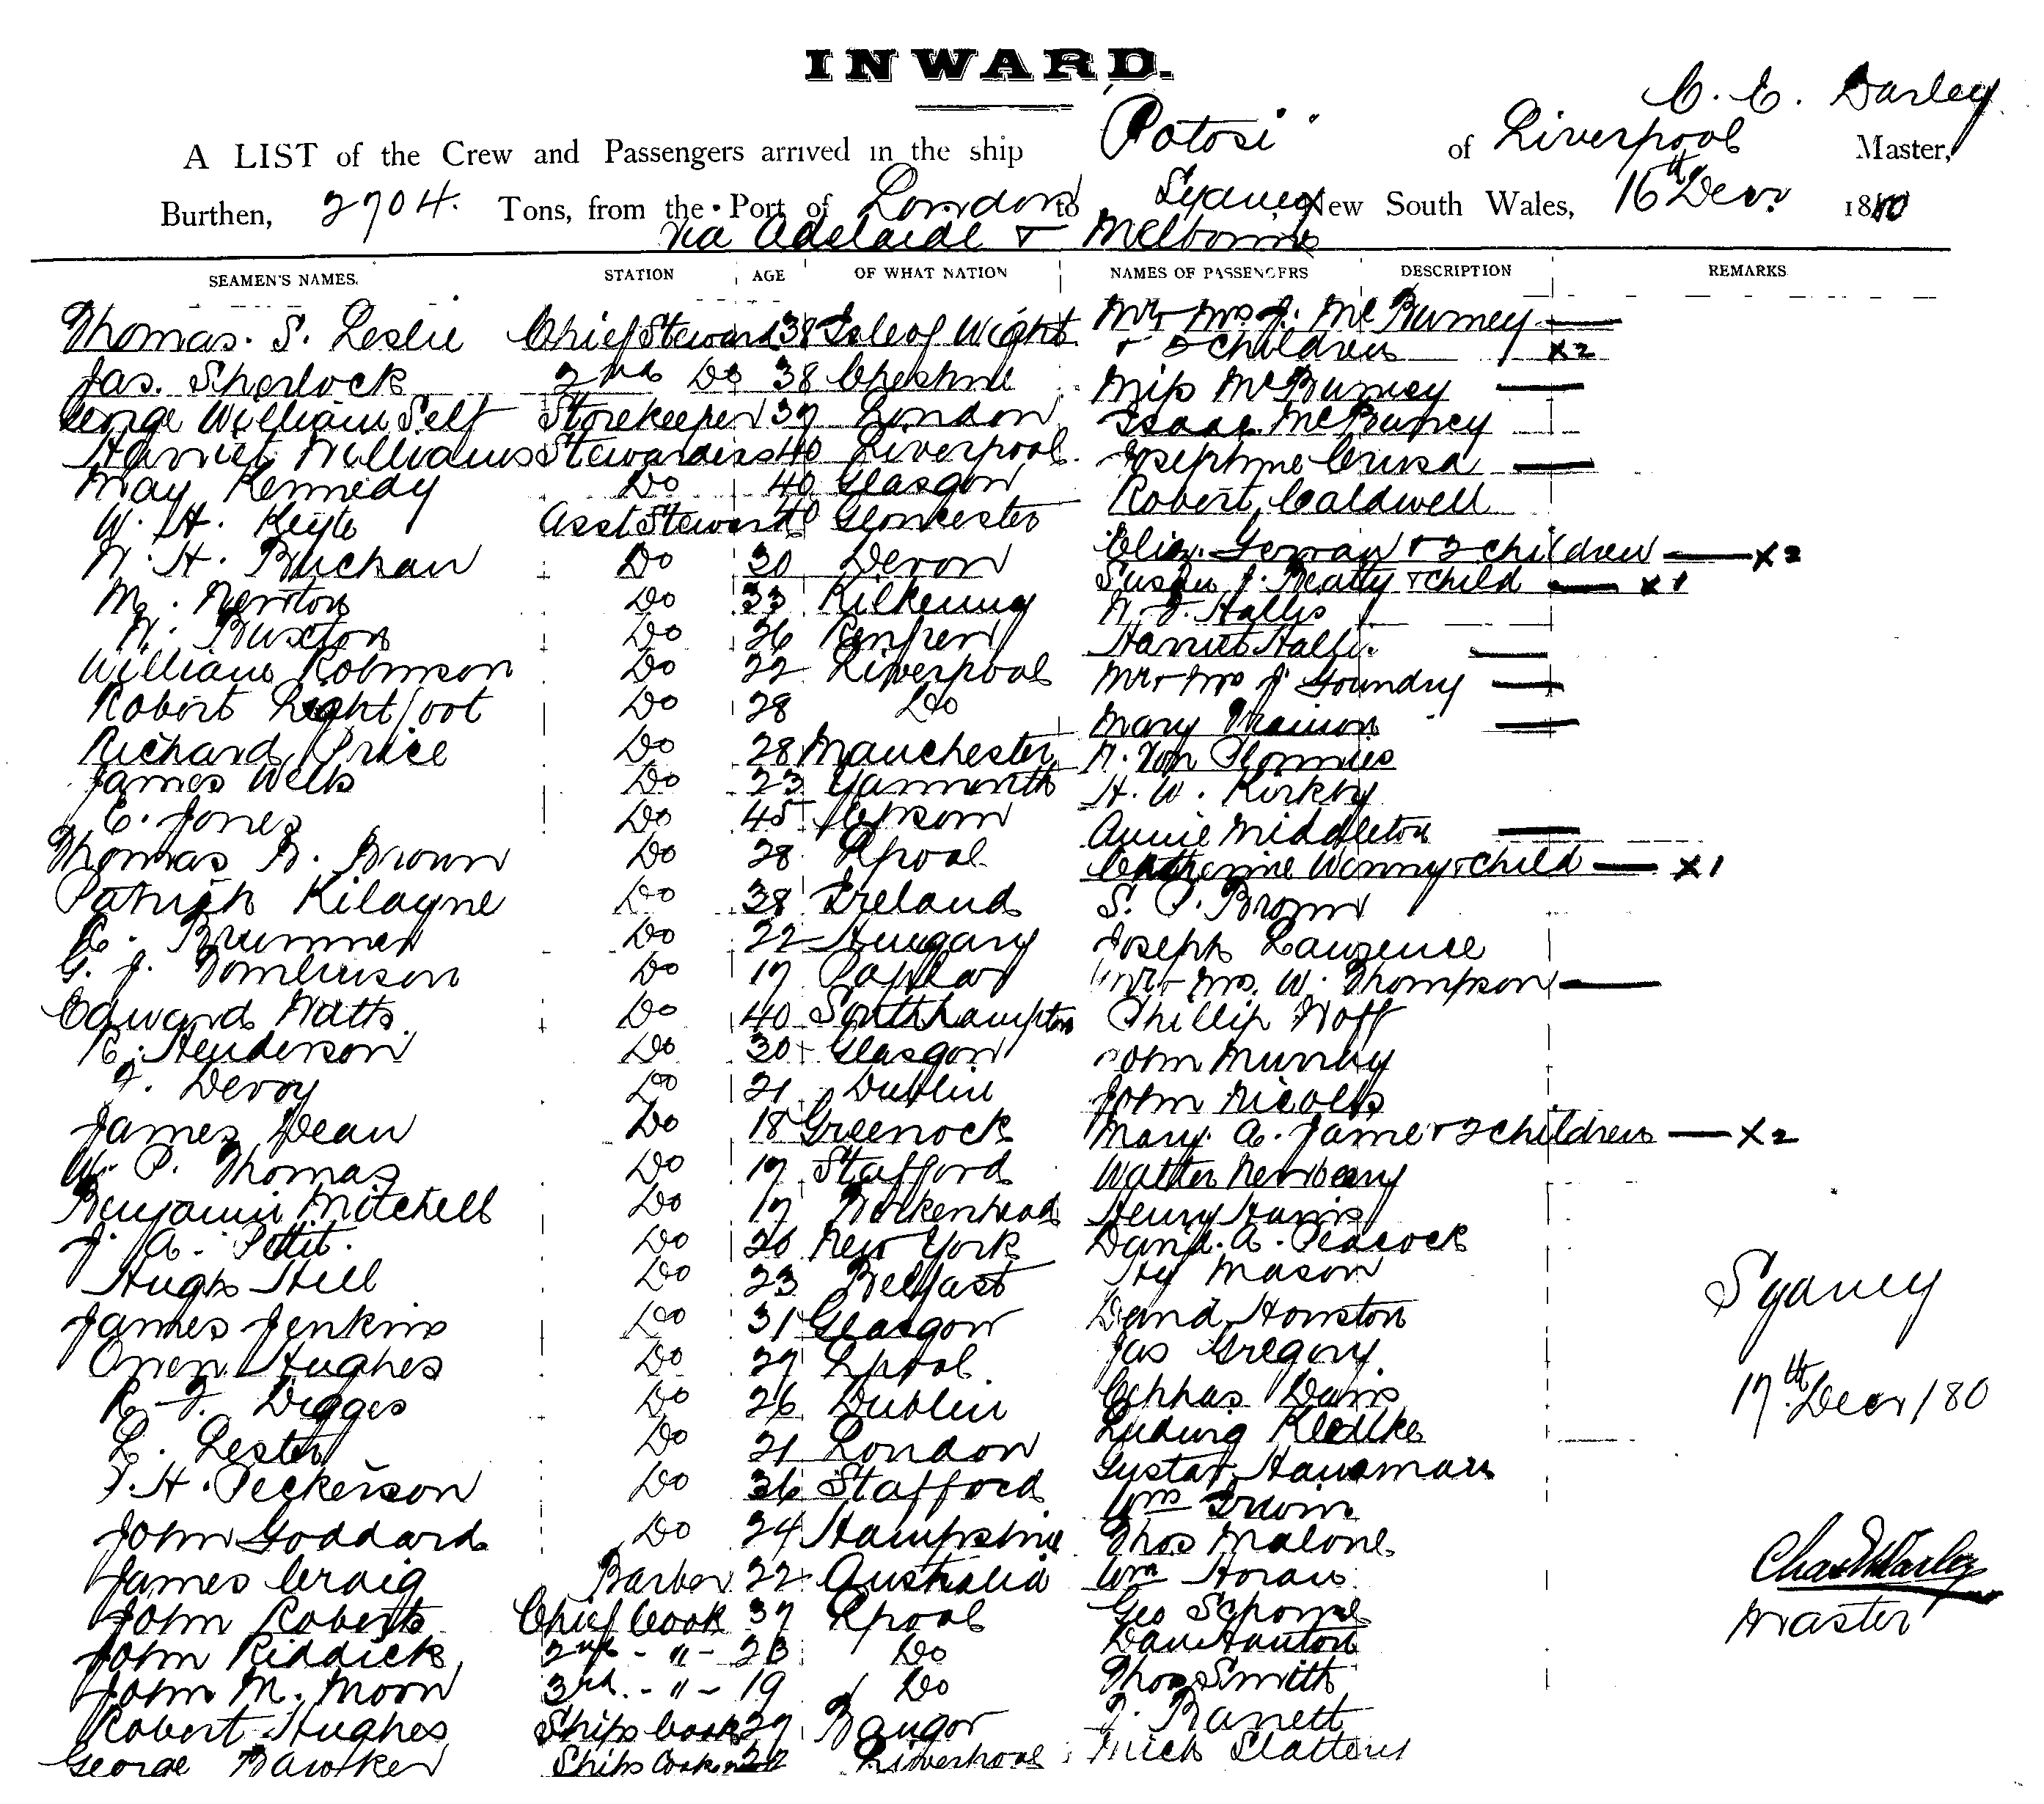 INWARD.
C. E. Darley
A LIST of the Crew and Passengers arrived in the ship "Potosi" of Liverpool Master,
Burthen, 2704. Tons, from the Port of London to Sydney New South Wales, 16th Decr. 1880
via Adelaide & Melbourne
SEAMEN'S NAMES. STATION AGE OF WHAT NATION NAMES OF PASSENGERS DESCRIPTION REMARKS
Thomas. S. Leslie Chief Steward 38 Isle of Wight Mr & Mrs J. McBurney
& 5 children x2
Jas. Sherlock 2nd Do 38 Cheshire Miss McBurney
George William Self Storekeeper 37 London Isaac McBurney
Harriet Williams Stewardess 40 Liverpool Josephine
May Kennedy Do 40 Glasgow Robert Caldwell
W. H. Keyte Asst Steward 40 Gloucester
W. H. Buchan Do 30 Devon Eliz. & 2 children x2
M. Newton Do 33 Kilkenny Susan J. Beatty & child x1
W. Buxton Do 26 W. J. Hallis
William Robinson Do 22 Liverpool Harriet
Robert Lightfoot Do 28 Do Mr & Mrs J. Goundry
Richard Price Do 28 Manchester Mary
James Wells Do 23 Yarmouth Von
E. Jones Do 45 H. W. Kirkby
Thomas B. Brown Do 28 Lpool Annie Middleton
Patrick Kilayne Do 38 Ireland Catherine & child x1
Brummer Do 22 Hungary S. P. Brown
G. J. Tomlinson Do 17 Poplar Joseph Lawrence
Edward Watts Do 40 Southhampton Mr & Mrs. W. Thompson
R. Henderson Do 30 Glasgow Phillip Woff
Devoy Do 21 Dublin John Murray
James Dean Do 18 Greenock John Nicolls
W. P. Thomas Do 17 Stafford Mary. A. Jame & 2 children x2
Benjamin Mitchell Do 17 Birkenhead Walter Newbery
J. A. Pettit. Do 20 New York Henry Harris
Hugh Hill Do 23 Belfast A. Peacock
James Jenkins Do 31 Glasgow Hy Mason
Owen Hughes Do 27 Lpool David Houston
R. J. Digges Do 26 Dublin Jas Gregory.
L. Lester Do 21 London Cephas Davis
T. H. Peckerson Do 36 Stafford Ludwig
John Goddard Do 24 Hampshire Gustav Hausmann
James Craig Barber 22 Australia Wm Irwin
John Roberts Chief Cook 37 Lpool Thos Malone
John Riddick 2nd - " - 23 Do Wm Horan
John M. Moon 3rd. - " - 19 Do Geo
Robert Hughes Ships Cook 27 Bangor Dan Hanton
George Hawker Ships Cook 22 Liverpool Thos Smith
T. Barrett
Mick Slattery
Sydney
17th Decr / 80
Chas E Darley
Master